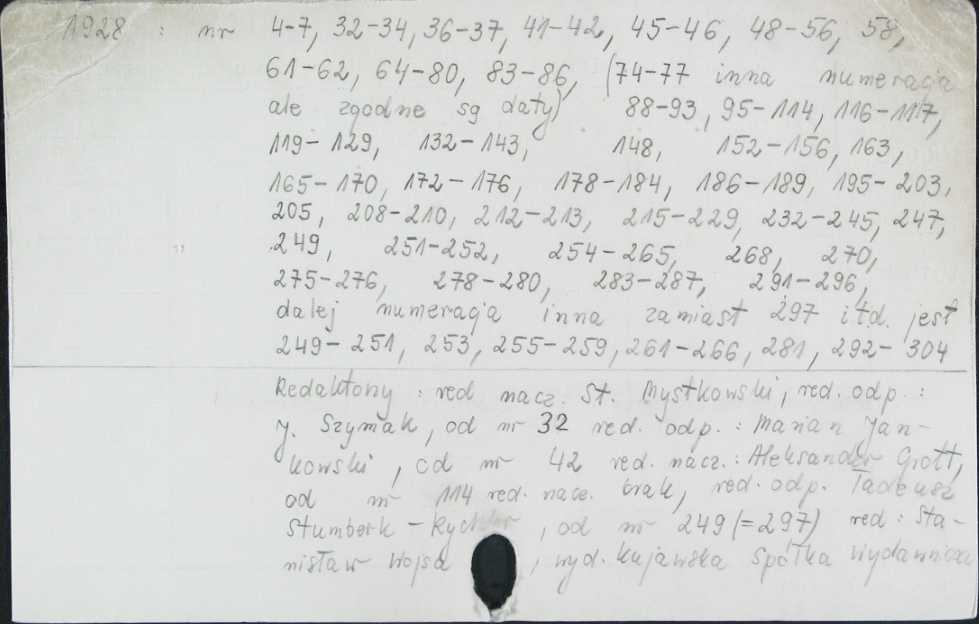 1928 : nr 4-7, 32-34, 36-37, 41-42, 45-46, 48-56, 58,
61-62, 64-80, 83-86, (74-77 inna numeracja
ale zgodne są daty) 88-93, 95-114, 116-117,
119-129, 132-143, 148, 152-156, 163,
165-170, 172-176, 178-184, 186-189, 195-203,
205, 208-210, 212-213, 215-229, 232-245, 247,
249, 251-252, 254-265, 268, 270,
275-276, 278-280, 283-287, 291-296,
dalej numeracja inna zamiast 297 itd. jest
249-251, 253, 255-259, 261-266, 281, 292-304
Redaktorzy : red nacz. St. Mystkowski, red. odp. :
J. Szymak, od nr 32 red. odp. : Marian Jan-
kowski, od nr 42 red. nacz. : Aleksander Grott,
od nr 114 red. nacz. brak, red. odp. Tadeusz
Stumberk-Rychter, od nr 249 (=297) red : Sta-
nisław Wojsa, wyd. Kujawska Spółka Wydawnicza